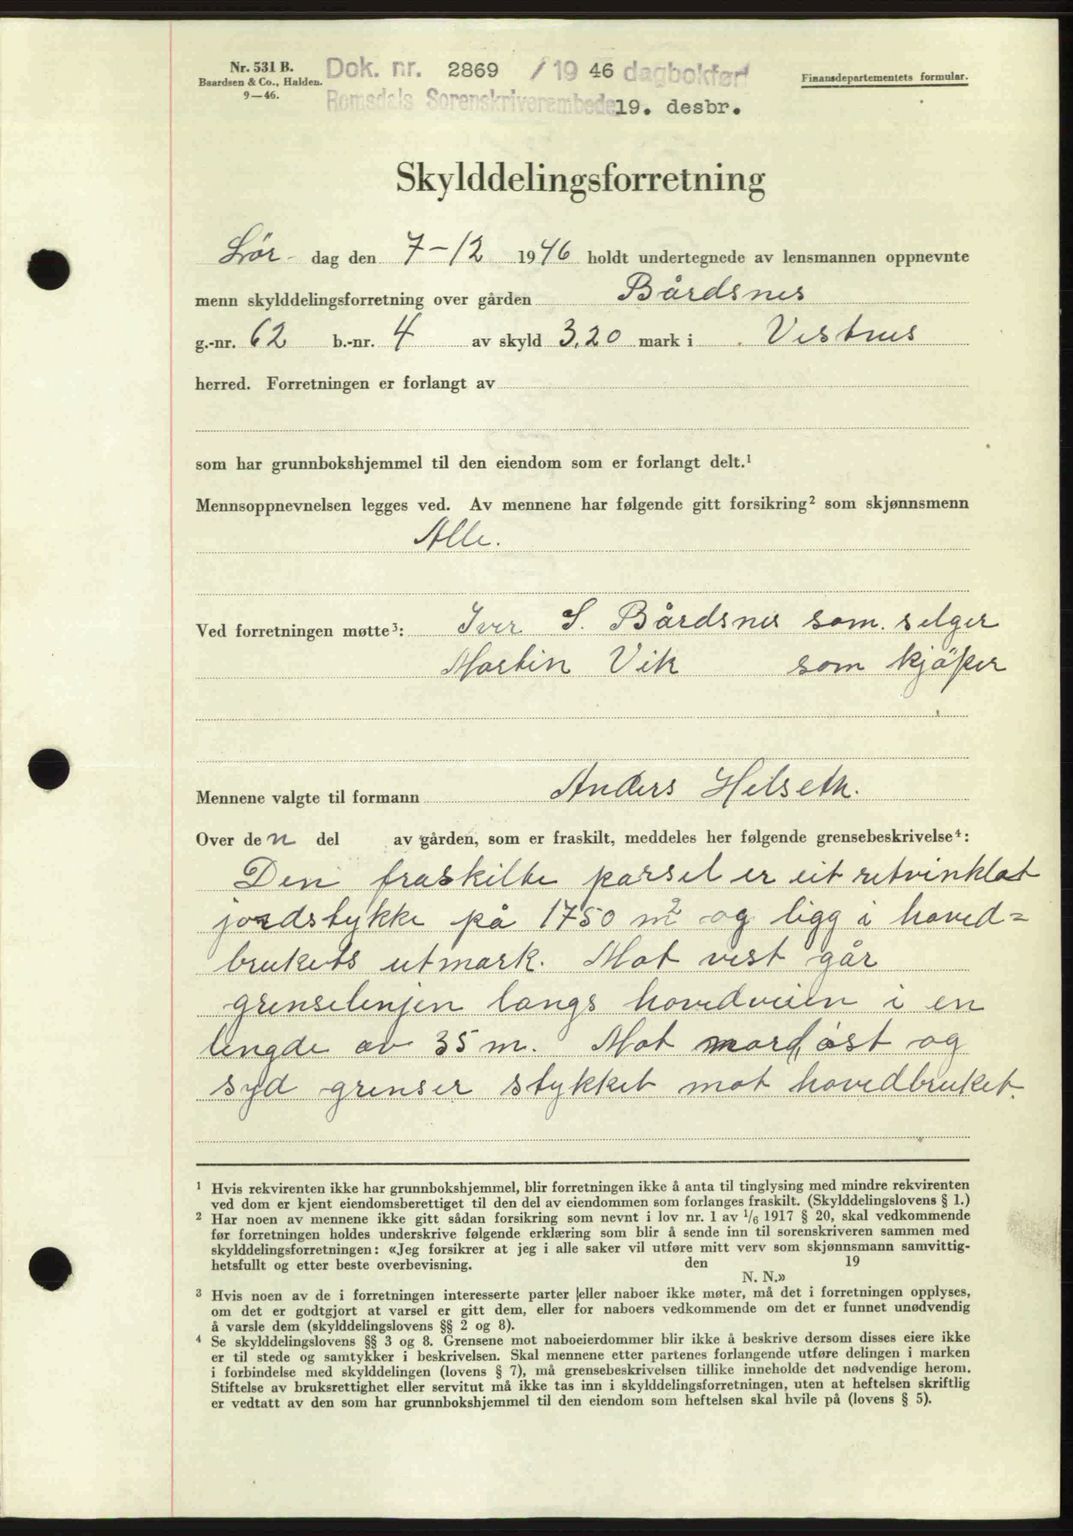 Nr. 531 B.
Baardsen & Co., Halden.
9—46.
Dok. nr. 2869 / 19 46 dagbokført
Romsdals Sorenskriverembede 19. desbr.
Finansdepartementets formular.
Skylddelingsforretning
Lör- dag den 7-12 1946 holdt undertegnede av lensmannen oppnevnte
menn skylddelingsforretning over gården Bårdsnes
g.-nr. 62 b.-nr. 4 av skyld 3,20 mark i Vestnes
herred. Forretningen er forlangt av
som har grunnbokshjemmel til den eiendom som er forlangt delt.¹
Mennsoppnevnelsen legges ved. Av mennene har følgende gitt forsikring² som skjønnsmenn
Alle.
Ved forretningen møtte³: Iver S. Bårdsnes som selger
Martin Vik som kjöper
Mennene valgte til formann Anders Helseth.
Over den del av gården, som er fraskilt, meddeles her følgende grensebeskrivelse⁴:
Den fraskilte parsel er eit retvinklat
jordstykke på 1750 m² og ligg i hoved=
brukets utmark. Mot vest går
grenselinjen langs hovedveien i en
lengde av 35 m. Mot nord, øst og
syd grenser stykket mot hovedbruket.
¹ Hvis rekvirenten ikke har grunnbokshjemmel, blir forretningen ikke å anta til tinglysing med mindre rekvirenten
ved dom er kjent eiendomsberettiget til den del av eiendommen som forlanges fraskilt. (Skylddelingslovens § 1.)
² Har noen av mennene ikke gitt sådan forsikring som nevnt i lov nr. 1 av 1/6 1917 § 20, skal vedkommende
før forretningen holdes underskrive følgende erklæring som blir å sende inn til sorenskriveren sammen med
skylddelingsforretningen: «Jeg forsikrer at jeg i alle saker vil utføre mitt verv som skjønnsmann samvittig-
hetsfullt og etter beste overbevisning. den 19
N. N.»
³ Hvis noen av de i forretningen interesserte parter eller naboer ikke møter, må det i forretningen opplyses,
om det er godtgjort at varsel er gitt dem, eller for naboers vedkommende om det er funnet unødvendig
å varsle dem (skylddelingslovens §§ 2 og 8).
⁴ Se skylddelingslovens §§ 3 og 8. Grensene mot naboeierdommer blir ikke å beskrive dersom disses eiere ikke
er til stede og samtykker i beskrivelsen. Skal mennene etter partenes forlangende utføre delingen i marken
i forbindelse med skylddelingen (lovens § 7), må grensebeskrivelsen tillike inneholde det nødvendige herom.
Stiftelse av bruksrettighet eller servitut må ikke tas inn i skylddelingsforretningen, uten at heftelsen skriftlig
er vedtatt av den som har grunnbokshjemmel til den eiendom som heftelsen skal hvile på (lovens § 5).